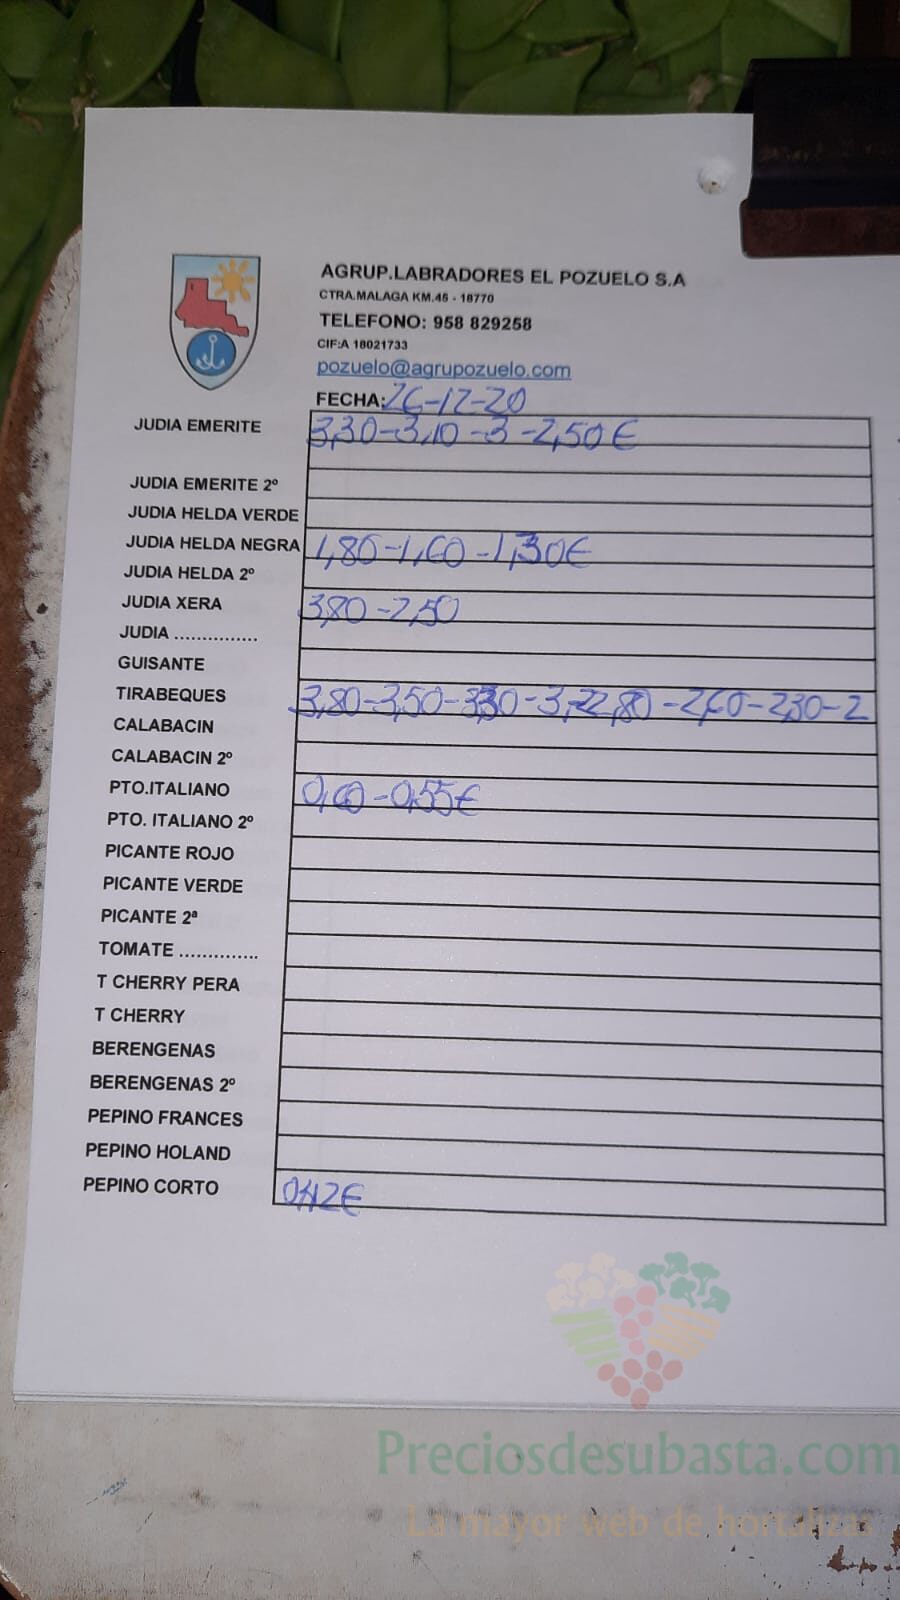 AGRUP.LABRADORES EL POZUELO S.A
CTRA.MALAGA KM.45 - 18770
TELEFONO: 958 829258
CIF:A 18021733
pozuelo@agrupozuelo.com
FECHA: 26-12-20
JUDIA EMERITE 3,30-3,10-3-2,50€
JUDIA EMERITE 2º
JUDIA HELDA VERDE
JUDIA HELDA NEGRA 1,80-1,60-1,30€
JUDIA HELDA 2º
JUDIA XERA 3,80-2,50
JUDIA ...............
GUISANTE
TIRABEQUES 3,80-3,50-3,30-3,-2,80-2,60-2,30-2
CALABACIN
CALABACIN 2º
PTO.ITALIANO 0,60-0,55€
PTO. ITALIANO 2º
PICANTE ROJO
PICANTE VERDE
PICANTE 2ª
TOMATE ..............
T CHERRY PERA
T CHERRY
BERENGENAS
BERENGENAS 2º
PEPINO FRANCES
PEPINO HOLAND
PEPINO CORTO 0,42€
Preciosdesubasta.com
La mayor web de hortalizas